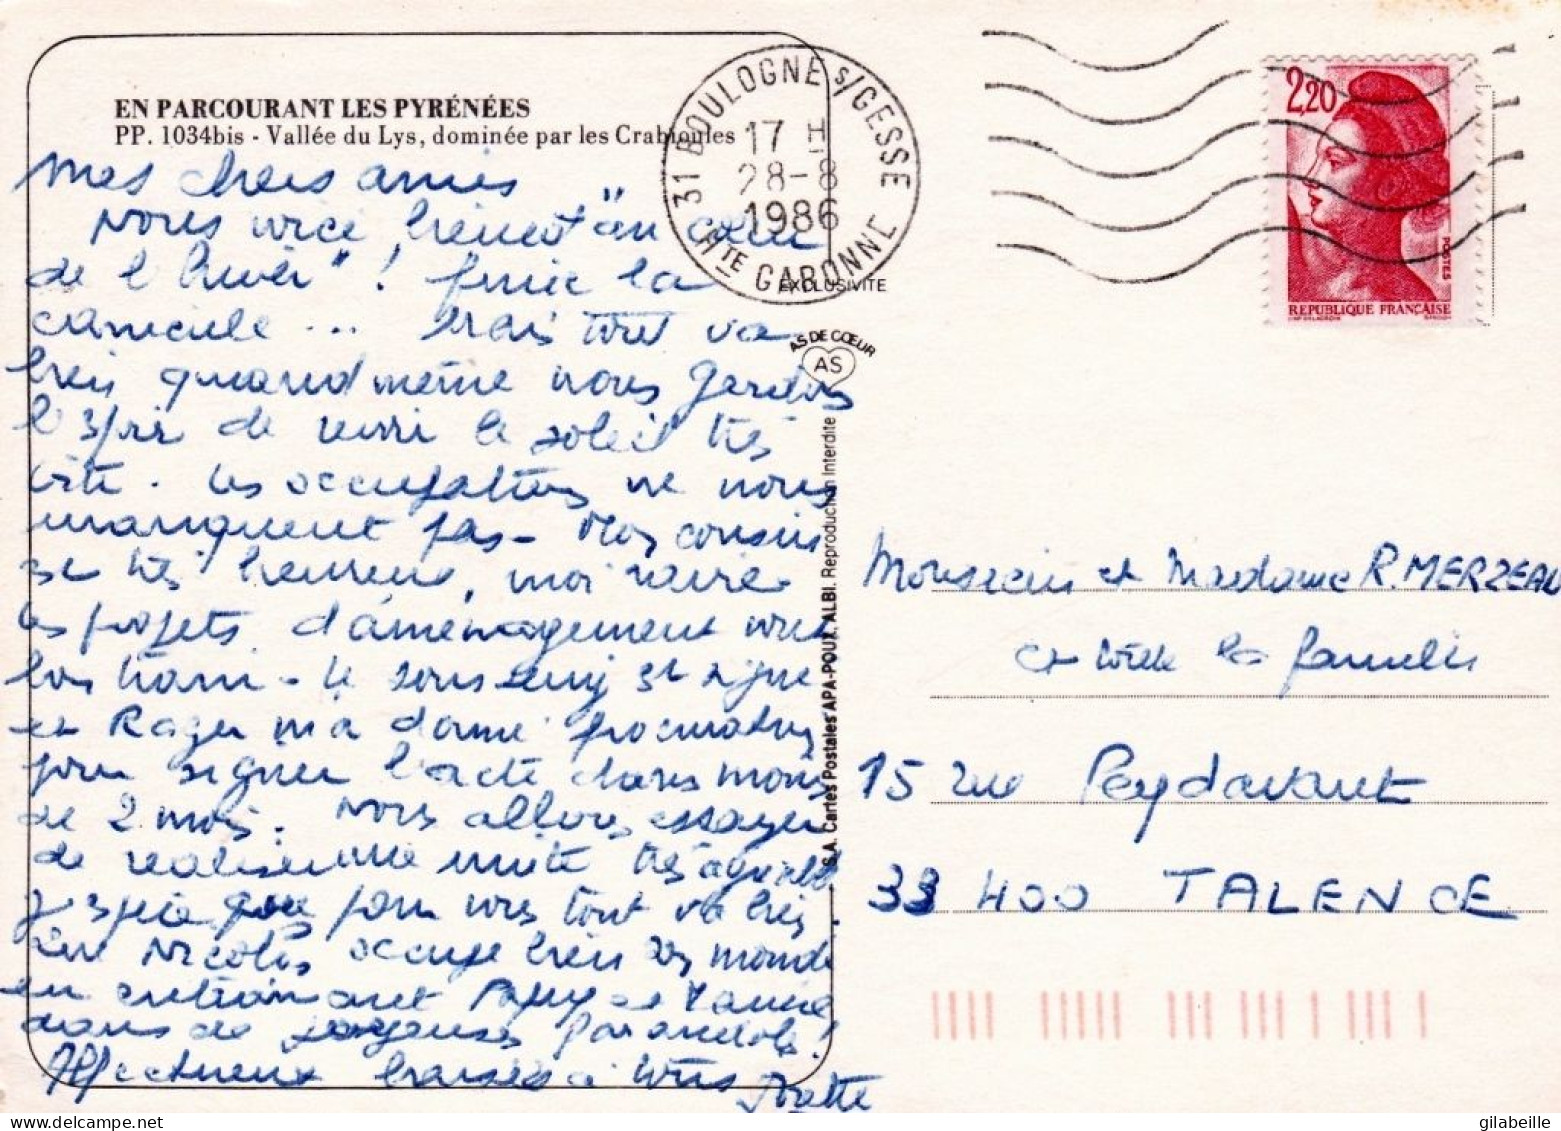 EN PARCOURANT LES PYRÉNÉES
PP. 1034bis - Vallée du Lys, dominée par les Crabioules
mes chers amis
Nous voici bientôt "au cœur
de l'hiver" ! finie la
canicule ... Mais tout va
bien quand même nous gardons
l'espoir de revoir le soleil très
vite. Les occupations ne nous
manquent pas - Mon cousin
est très heureux, moi
les projets d'aménagement vont
bon train - le sous seing est signé
et Roger m'a donné procuration
pour signer l'acte dans moins
de 2 mois. Nous allons essayer
de réaliser une unité très agréable
J'espère que pour vous tout va bien.
Nicolas occupe bien son monde
en entraînant Papy et Mamie
dans de joyeuses farandoles!
Affectueux baisers à tous
Yvette
31 BOULOGNE s/GESSE
17 H
28-8
1986
Hte GARONNE
EXCLUSIVITE
AS DE CŒUR
AS
S.A. Cartes Postales APA-POUX, ALBI. Reproduction Interdite
2,20
POSTES
REPUBLIQUE FRANÇAISE
Monsieur et Madame R. MERZEAU
et toute la famille
15 rue Peydavant
33 400 TALENCE
gilabeille